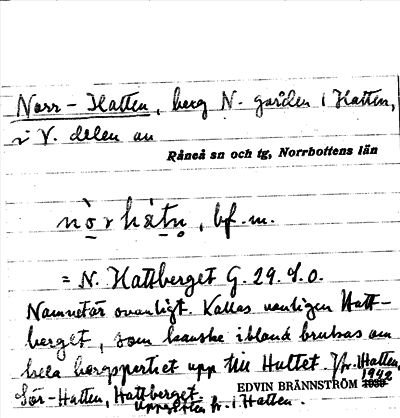 Norr-Hatten, berg N. gården i Hatten,
i V. delen av
Råneå sn och tg, Norrbottens län
nò̱rhàtn̥, bf. m.
= N. Hattberget G. 29. S. O.
Namnet är ovanligt. Kallas vanligen Hatt-
berget, som kanske ibland brukas om
hela bergspartiet upp till Huttet. Jfr. i Hatten,
Sör-Hatten, Hattberget. EDVIN BRÄNNSTRÖM 1942
Uppgiften fr. i Hatten.